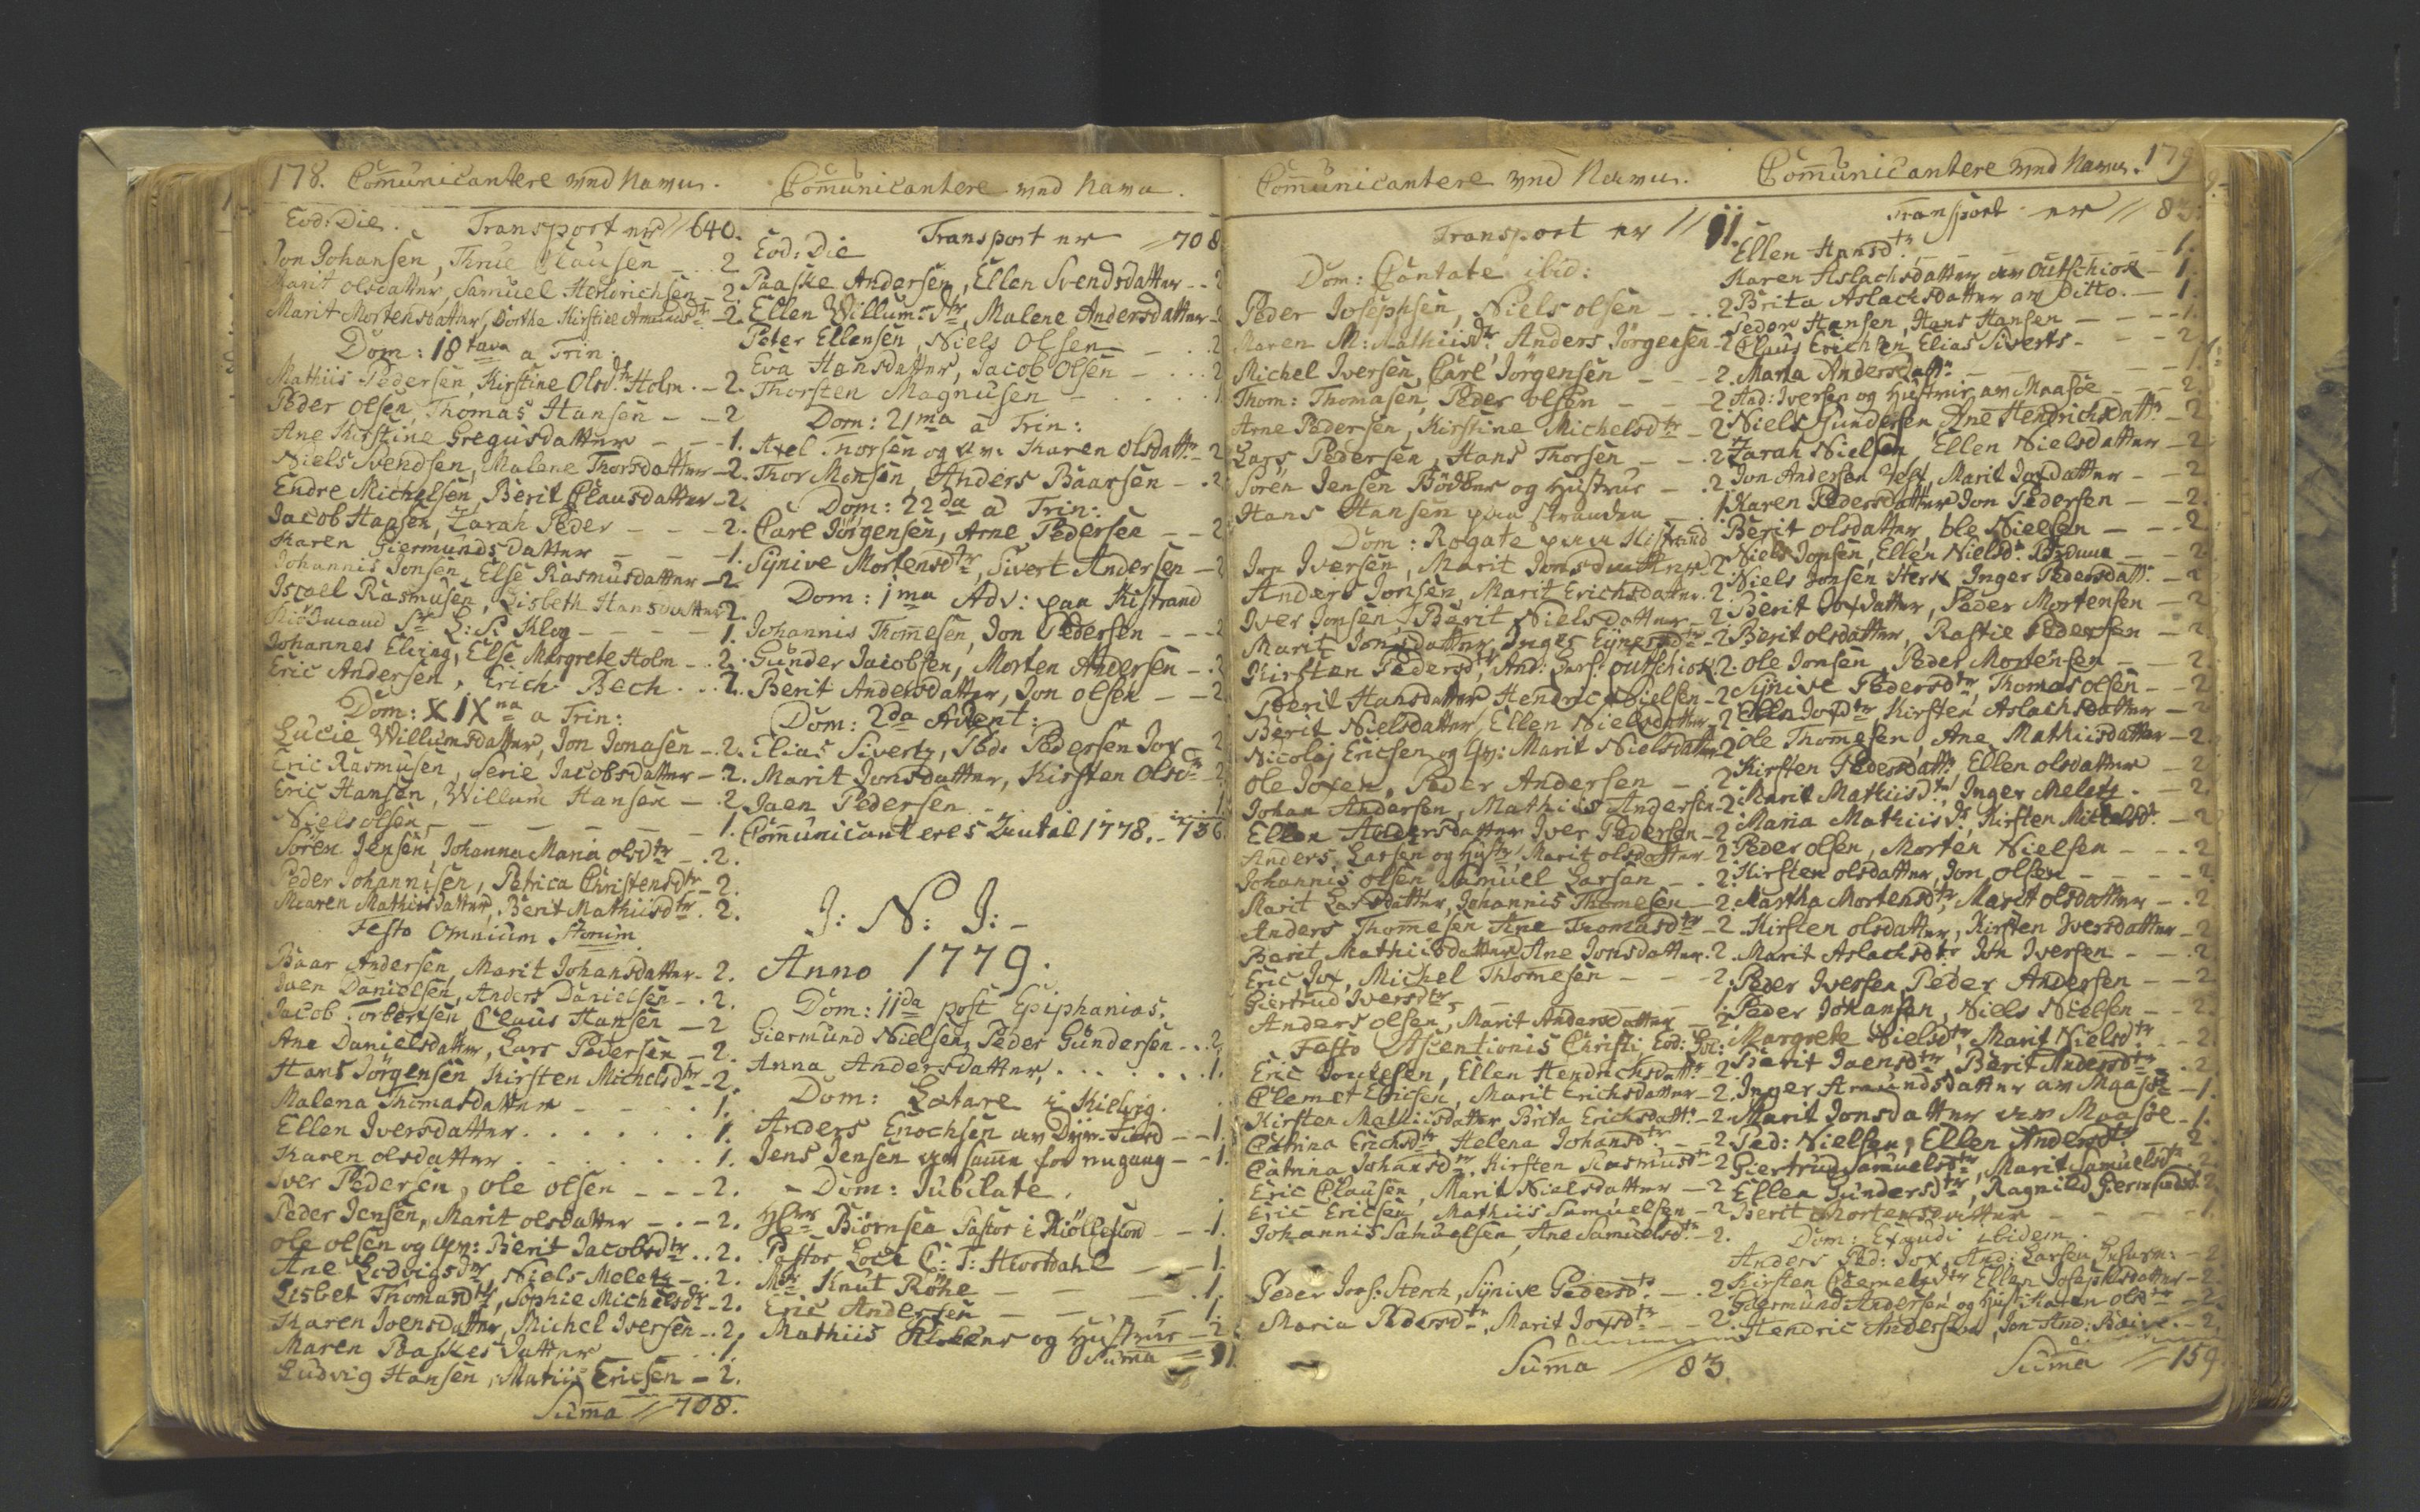 178. Communicantere ved Navn.
Eod: Die. Transport er // 640.
Jon Johansen, Thrue Clausen - - 2
Marit Olsdatter, Samuel Hendrichsen - 2.
Marit Mortensdatter, Dorthe Kirstine Amundsdtr - 2.
Dom: 18tava a Trin:
Mathiis Pedersen, Kirstine Olsdtr Holm. - 2.
Peder Olsen, Thomas Hansen - - 2
Ane Kirstine Gregusdatter - - - 1.
Niels Svendsen, Malene Thorsdatter - 2.
Endre Michelsen, Berit Clausdatter - 2.
Jacob Hansen, Zarah Peder - - - 2.
Karen Giermundsdatter - - - 1.
Johannis Jonsen, Else Rasmusdatter - 2
Israel Rasmusen, Lisbeth Hansdatter 2.
Sr L: P: Klog - - - - 1.
Johannes Eling, Else Margrete Holm - . 2.
Eric Andersen, Erich Bech . . 2.
Dom: XIXna a Trin:
Lucie Willumsdatter, Jon Jonasen - 2.
Eric Rasmusen, Serie Jacobsdatter - 2.
Eric Hansen, Willum Hansen - 2
Niels Olsen, - - - - - - 1.
Søren Jensen, Johanna Maria Olsdtr - . 2.
Peder Johannisen, Petrica Christensdtr - 2.
Maren Mathiisdatter, Berit Mathiisdtr . 2.
Festo Omnium Storum
Baar Andersen, Marit Johansdatter - 2.
Joen Danielsen, Anders Danielsen - . 2.
Jacob Torbersen Claus Hansen - 2
Ane Danielsdatter, Lars Pedersen - 2.
Hans Jørgensen, Kirsten Michelsdtr - 2.
Malena Thomasdatter - - - . 1.
Ellen Iversdatter . . . . . . . 1.
Karen Olsdatter . . . . . . . 1.
Iver Pedersen, Ole Olsen - - - 2.
Peder Jensen, Marit Olsdatter - . - 2.
Ole Olsen og Qv: Berit Jacobsdtr . . 2.
Ane Ludvigsdtr, Niels Meletz - . 2.
Lisbet Thomasdtr, Sophie Michelsdtr - 2.
Karen Joensdatter, Michel Iversen - . 2.
Maren Paaskesdatter . . 1
Ludvig Hansen, Mathiis Ericsen - 2.
Summa // 708.
Communicantere ved Navn.
Eod: Die Transport er // 708
Paaske Andersen, Ellen Svendsdatter - - 2
Ellen Willumsdtr, Malene Andersdatter - 2
Peter Ellensen, Niels Olsen - . . 2
Eva Hansdatter, Jacob Olsen - . . . 2
Thorsten Magnusen - . . . . 1
Dom: 21ma a Trin:
Axel Thorsen og Qv: Karen Olsdattr - 2
Thor Monsen, Anders Baarsen - . 2
Dom: 22da a Trin:
Carl Jørgensen, Arne Pedersen - - 2
Synive Mortensdtr, Sivert Andersen - 2
Dom: 1ma Adv: paa Kistrand
Johannis Thomesen, Jon Pedersen - - - 2
Gunder Jacobsen, Morten Andersen - . 2
Berit Andersdatter, Jon Olsen - - 2
Dom: 2da Advent:
Elias Sivertz, Ped: Pedersen Jox - 2
Marit Jonsdatter, Kirsten Olsdtr - 2
Joen Pedersen - - - 1
Communicanteres Antal 1778. - 736
J: N: J: -
Anno 1779.
Dom: IIda post Epiphanias.
Giermund Nielsen, Peder Gundersen - . . 2.
Anna Andersdatter, . . . . . . . 1.
Dom: Lætare i Kielvig.
Anders Enochsen av Dyr-Fiord - - 1
Jens Jensen - - 1.
- Dom: Jubilate.
Hr Biørnsen Pastor i Kiøllefiord - - 1.
Pastor Loci C: T: Hiortdahl - - 1.
Mr Knut Røke - - - - . 1
Eric Andersen - - - - 1.
Mathiis og Hustrue - 2
Suma = 11.
Communicantere ved Navn.
Transport er // 11.
Dom: Cantate ibid:
Peder Josephsen, Niels Olsen - - . 2
Maren M: Mathiisdtr Anders Jørgensen - 2
Michel Iversen, Carl Jørgensen - - - 2.
Thom: Thomasen, Peder Olsen - - - 2
Arne Pedersen, Kirstine Michelsdtr - 2
Lars Pedersen, Hans Thorsen - - . 2
Søren Jensen Bødker og Hustrue - . 2
Hans Hansen paa Stranden - . 1
Dom: Rogate paa Kistrand
Jon Iversen, Marit Jonsdatter 2
Anders Jonsen, Marit Erichsdatter. 2
Iver Jonsen, Berit Nielsdatter - 2
Marit Jonsdatter, Inger - 2
Kirsten Pedersdtr, And: Lars: Outschiok 2.
Berit Hansdatter, Hendric Nielsen - 2
Berit Nielsdatter, Ellen Nielsdatter - 2
Nicolaj Ericsen og Qv: Marit Nielsdatter 2
Ole Joxen, Peder Andersen - - 2
Johan Andersen, Mathiis Andersen - 2
Ellen Andersdatter Iver Pedersen - 2
Anders Larsen og Hustr: Marit Olsdatter - 2
Johannis Olsen Samuel Larsen - . 2.
Marit Larsdatter, Johannis Thomesen - 2
Anders Thomesen Ane Thomasdtr - 2
Berit Mathiisdatter, Ane Jonsdatter. 2
Eric Jox, Michel Thomesen - - - 2
Giertrud Iversdtr, - - - - 1.
Anders Olsen, Marit Andersdatter - 2
Festo Ascentionis Christi Eod: Loc:
Eric Jouresen, Ellen Hendrichsdattr - 2
Clemet Ericsen, Marit Erichsdatter - 2
Kirsten Mathiisdatter, Brita Ericksdattr - 2
Catrina Erichsdtr, Helena Johansdtr - - 2
Catrina Johansdtr, Kirsten Rasmusdtr - 2
Eric Clausen, Marit Nielsdatter - 2
Eric Ericsen, Mathiis Samuelsen - 2
Johannis Samuelsen, Ane Samuelsdtr - 2.
Peder Jons: Sterk, Synive Pedersdtr - . 2
Maria Pedersdtr, Marit Joxsdtr - - 2.
Summa // 83.
Communicantere ved Navn. 179
Transport er // 83.
Ellen Hansdtr - - - - - 1.
Karen Aslachsdatter av Outschiok - 1.
Brita Aslachsdatter av Ditto. - 1.
Peder Hansen, Hans Hansen - - - - 2
Claus Erichsen Elias Siverts - - - 2
Maria Andersdattr - - - - 1.
And: Iversen og Hustrue av Maasøe - - - 2
Niels Gundersen, Ane Hendrichsdattr - 2
Zarah Nielsen, Ellen Nielsdatter - 2
Jon Andersen, Marit Joxdatter - - 2
Karen Pedersdatter Jon Pedersen - - 2.
Berit Olsdatter, Ole Nielsen - - - 2
Niels Jonsen, Ellen Nielsdtr - - 2
Niels Jonsen Sterk Inger Pedersdattr - 2
Berit Joxdatter, Peder Mortensen - 2
Berit Olsdatter, Rastie Pedersen - 2
Ole Jonsen, Peder Mortensen - - 2.
Synive Pedersdtr, Thomas Olsen - - 2
Ellen Joxdtr Kirsten Aslachsdatter - 2
Ole Thomesen, Ane Mathiisdatter - 2.
Kirsten Pedersdattr, Ellen Olsdatter - 2
Marit Mathiisdtr, Inger Meletz. - 2.
Maria Mathiisdtr, Kirsten Mickelsdtr - 2
Peder Olsen, Morten Nielsen - - - 2
Kirsten Olsdatter, Jon Olsen - - - - 2.
Martha Mortensdtr, Marit Olsdatter - . 2
Kirsten Olsdatter, Kirsten Iversdatter - 2
Marit Aslachsdtr Jon Iversen - - . 2
Peder Iversen, Peder Andersen - - 2
Peder Johansen, Niels Nielsen - - 2.
Margrete Nielsdtr, Marit Nielsdtr - - 2.
Berit Joensdtr, Berit Andersdtr - . 2
Inger Amundsdatter av Maasøe - 1.
Marit Jonsdatter av Maasøe - 1.
Ped: Nielsen, Ellen Andersdtr - 2.
Giertrud Samuelsdtr, Marit Samuelsdtr 2.
Ellen Gundersdtr, Ragnild Giermundsd. 2.
Berit Mortensdatter - - - - 1.
Dom: Exaudi ibidem.
Anders Ped: Jox, And: Larsen - 2
Kirsten Clemetzdtr Ellen Josephsdatter - 2.
Giermund Andersen og Hust: Karen Olsdtr - 2.
Hendric Andersen, Jon And: Baive. - 2.
Summa // 159.